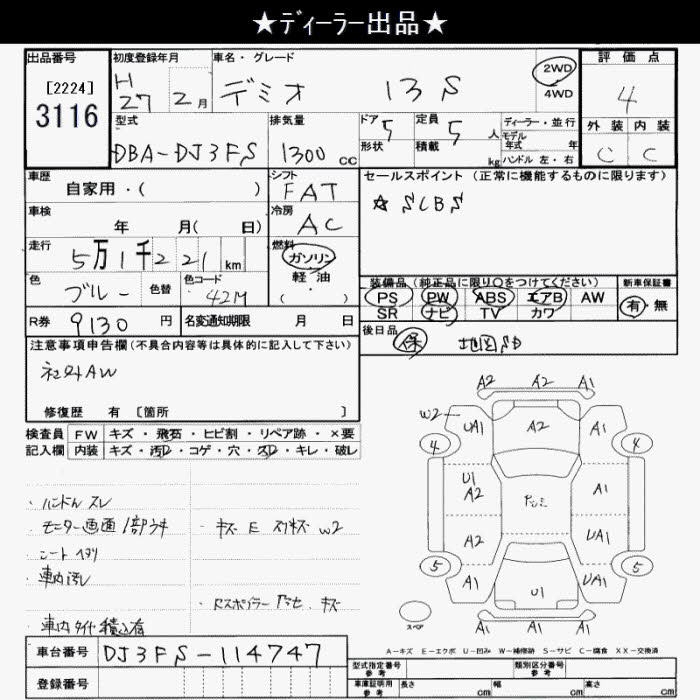 ★ディーラー出品★
出品番号
[2224]
3116
初度登録年月
H
27 2月
車名・グレード
デミオ 13S
2WD
4WD
評価点
4
外装 内装
C C
型式
DBA-DJ3FS
排気量
1300 cc
ドア 5
形状
定員 5 人
積載 kg
ディーラー・並行
モデル
年式 年
ハンドル 左・右
車歴
自家用・( )
シフト
FAT
セールスポイント (正常に機能するものに限ります)
☆ SCBS
車検
年 月( 日)
冷房
AC
走行
5万1千221 km
燃料
ガソリン
軽・油
( )
色
ブルー 色替
色コード
42M
装備品 (純正品に限り○をつけてください)
PS PW ABS エアB AW
SR ナビ TV カワ
新車保証書
有・無
R券 9130 円
名変通知期限 月 日
後日品
保 地図SD
注意事項申告欄(不具合内容等は具体的に記入して下さい)
社外AW
修復歴 有 [箇所 ]
検査員 FW キズ・飛石・ヒビ割・リペア跡・×要
記入欄 内装 キズ・汚れ・コゲ・穴・スレ・キレ・破レ
・ハンドル スレ
・モニター画面 1部ウキ
・キズ E スリキズ W2
・シート ヘタリ
・車内汚レ
・Rスポイラー キズ
・車内タイヤ積込有
A2 A2 A1
W2
UA1 A2 A1
4 4
U1
A2
A1
A2 UA1
5 5
A1 U1 UA1
スペア
A1 A1 A1
A-キズ E-エクボ U-凹み W-補修跡 S-サビ C-腐食 XX-交換済
車台番号 DJ3FS-114747
登録番号
型式指定番号
参考
類別区分番号
参考
車庫証明用
参考
長さ cm 幅 cm 高さ cm